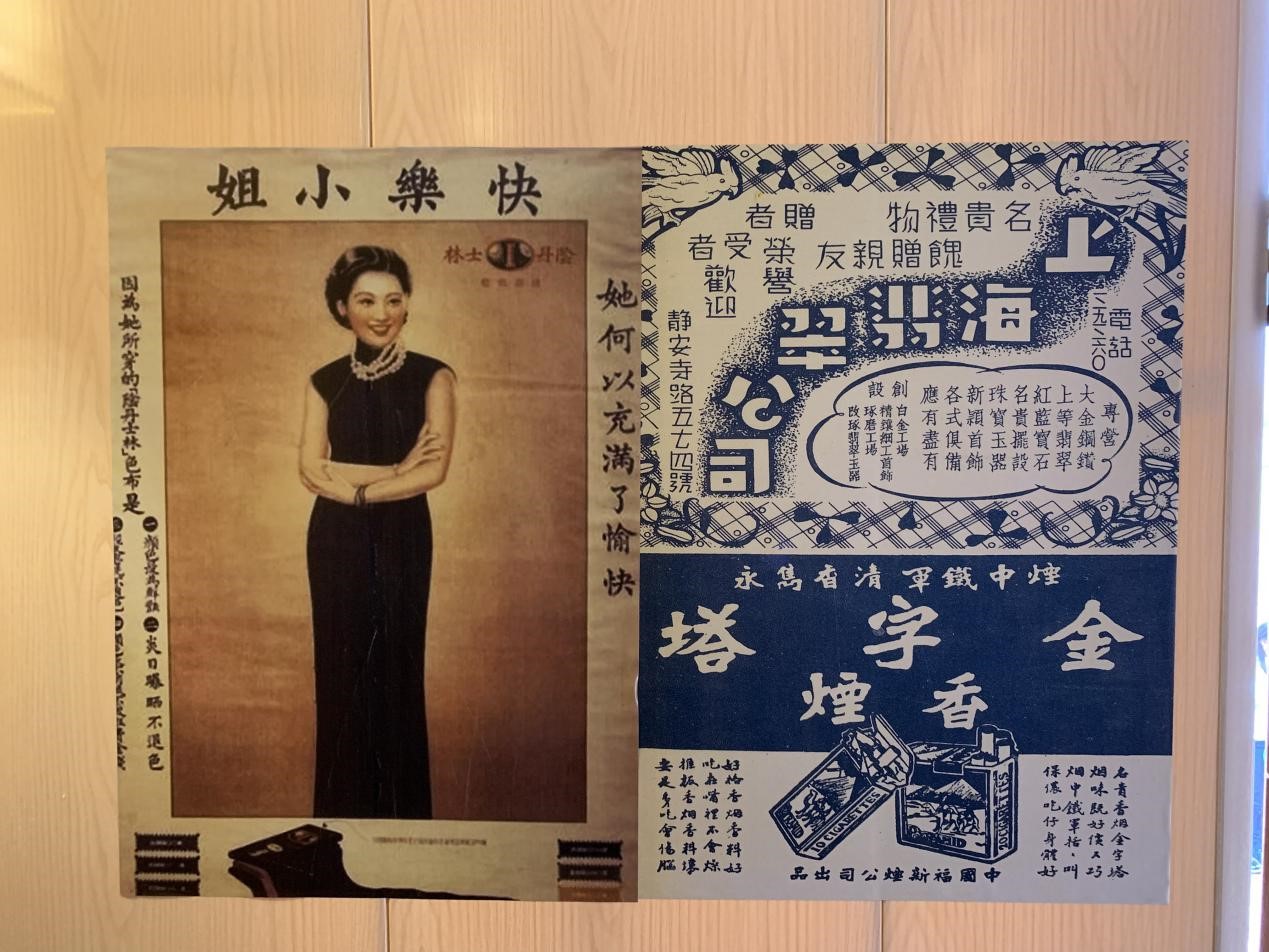 快樂小姐
陰丹士林
她何以充滿了愉快
因為她所穿的「陰丹士林」色布是
㊀顏色最為鮮豔
㊁炎日曝晒不退色
名貴禮物
餽贈親友
贈者
榮譽
受者
歡迎
上海翡翠公司
電話
靜安寺路五七四號
專營
大金鋼鑽
上等翡翠
紅藍寶石
名貴擺設
珠寶玉器
新穎首飾
各式俱備
應有盡有
創設
白金工場
精鑲細工首飾
琢磨工場
改琢翡翠玉器
煙中鐵軍清香雋永
金字塔
香煙
名貴香烟金字塔
烟味既好價又巧
烟中鐵軍括、叫
保儂吃仔身體好
10 CIGARETTES
20 CIGARETTES
PYRAMID
好格香烟香料好
吃在嘴裡不會燥
推板香烟香料壞
要是多吃會傷腦
中國福斯煙公司出品